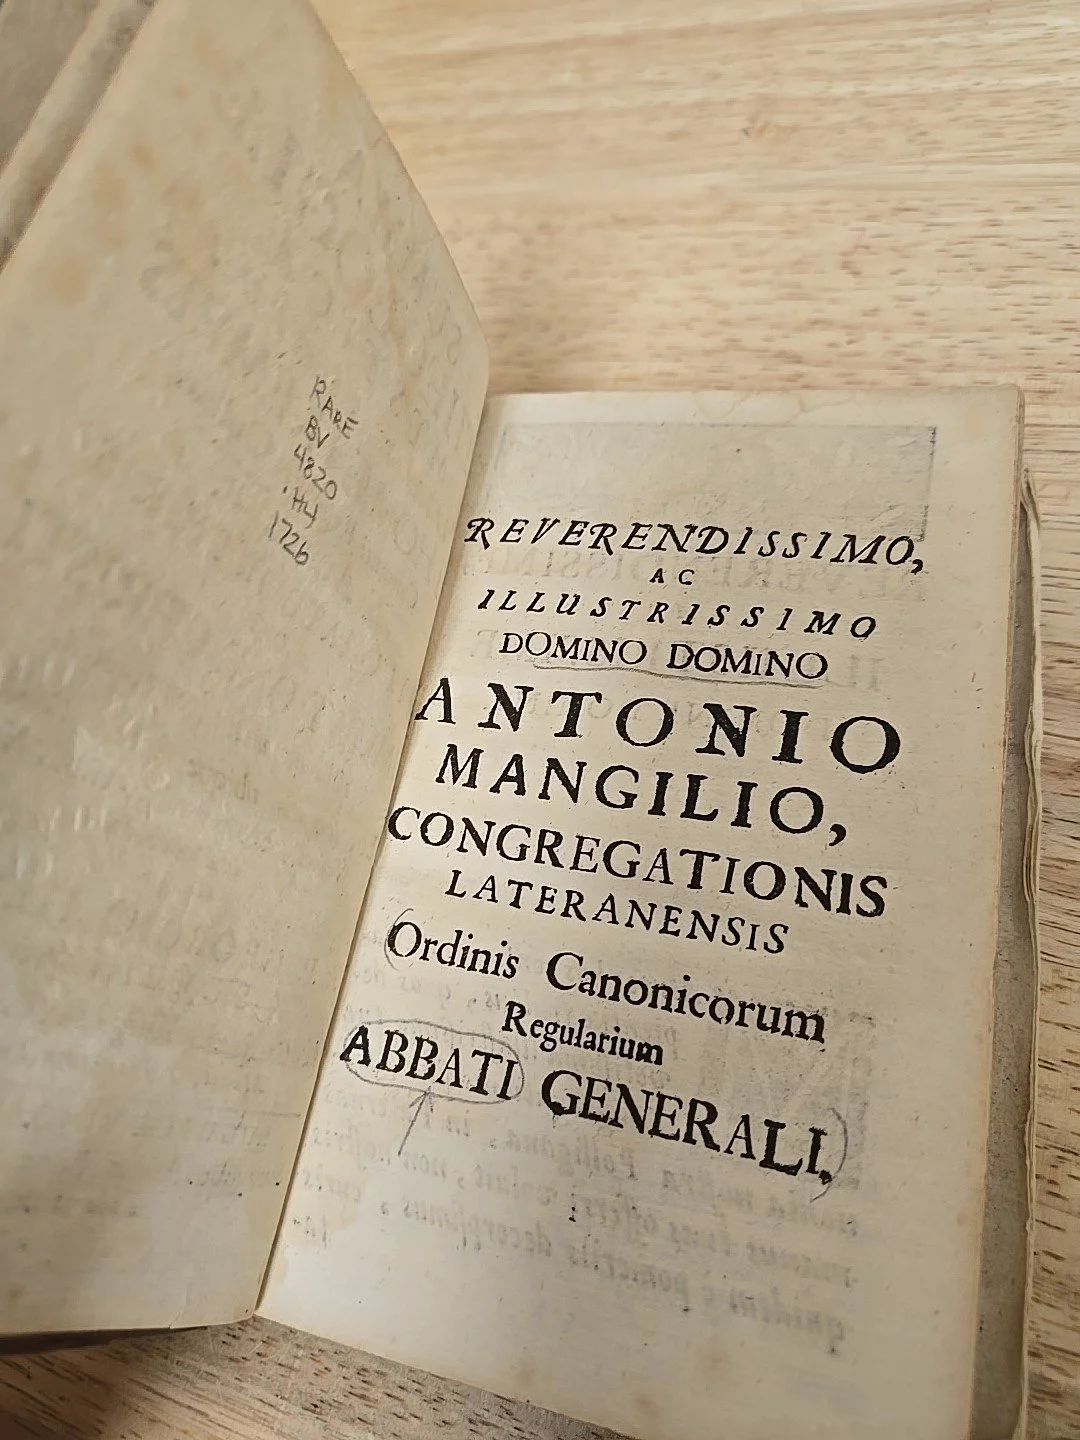 RARE
BV
4820
.H4
1726
REVERENDISSIMO,
AC
ILLUSTRISSIMO
DOMINO DOMINO
ANTONIO
MANGILIO,
CONGREGATIONIS
LATERANENSIS
Ordinis Canonicorum
Regularium
ABBATI GENERALI.